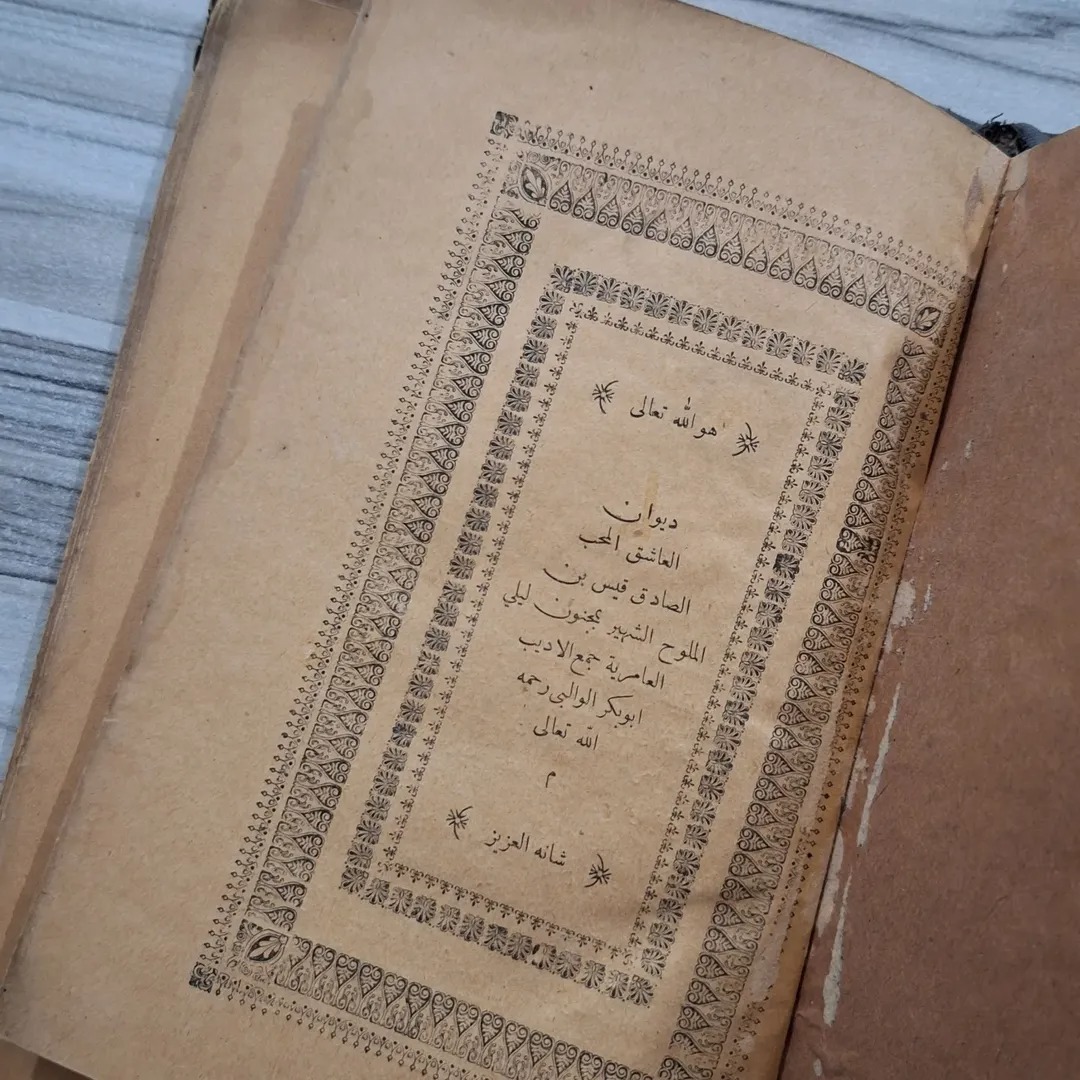 هو الله تعالى
ديوان
العاشق المحب
الصادق قيس بن
الملوح الشهير بمجنون ليلي
العامرية جمع الاديب
ابو بكر الوالبى رحمه
الله تعالى
م
شانه العزيز